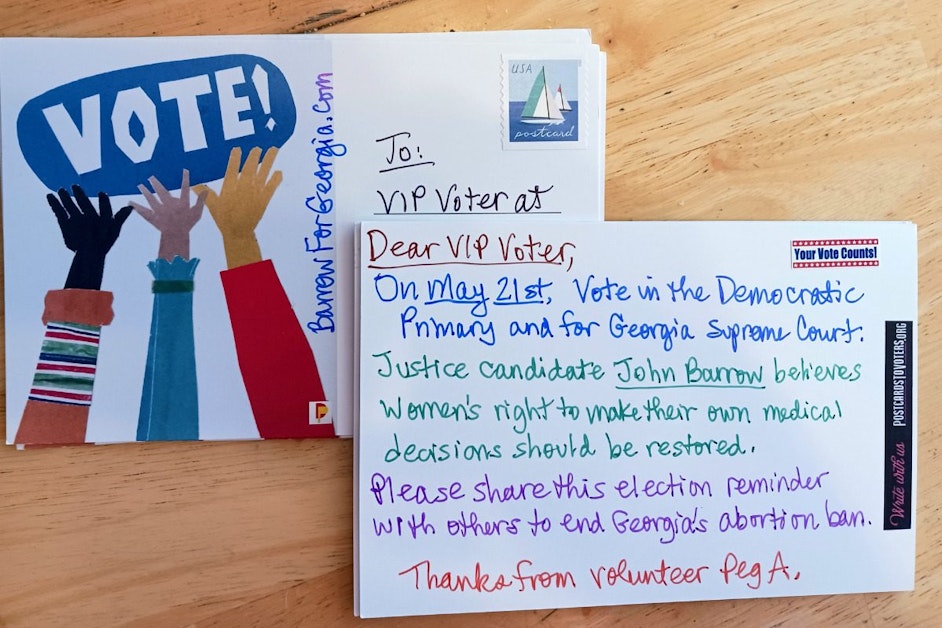 VOTE!
BarrowForGeorgia.com
USA
postcard
To:
VIP Voter at
Dear VIP Voter,
Your Vote Counts!
On May 21st, Vote in the Democratic
Primary and for Georgia Supreme Court.
Justice candidate John Barrow believes
women's right to make their own medical
decisions should be restored.
Please share this election reminder
with others to end Georgia's abortion ban.
Thanks from volunteer Peg A.
Write with us POSTCARDSTOVOTERS.ORG